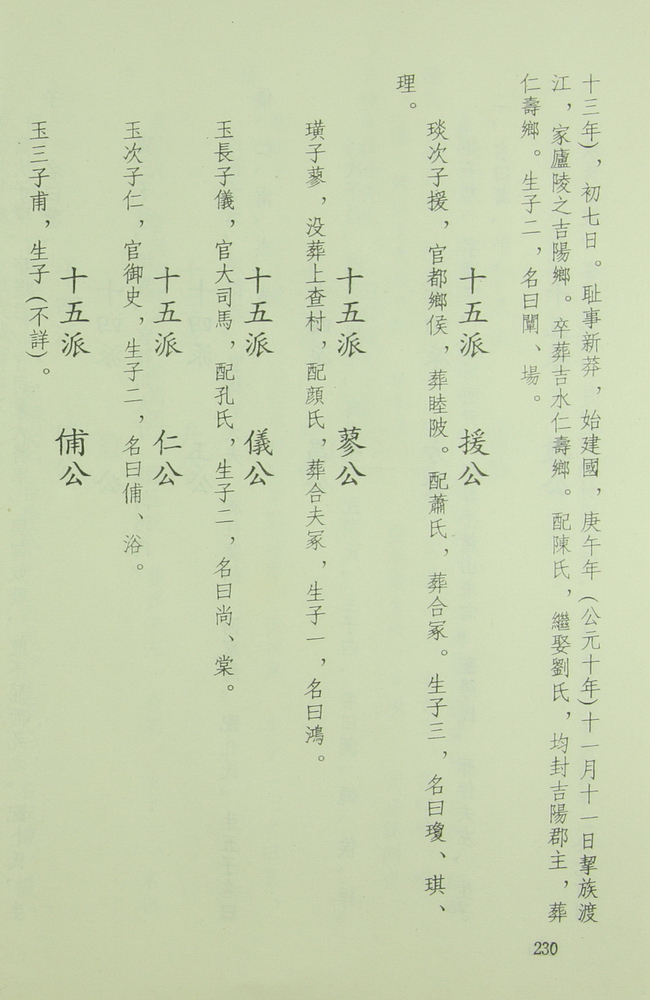 十三年)，初七日。耻事新莽，始建國，庚午年(公元十年)十一月十一日挈族渡
江，家廬陵之吉陽鄉。卒葬吉水仁壽鄉。配陳氏，繼娶劉氏，均封吉陽郡主，葬
仁壽鄉。生子二，名曰闡、場。
十五派　援公
琰次子援，官都鄉侯，葬睦陂。配蕭氏，葬合冢。生子三，名曰瓊、琪、
理。
十五派　蓼公
璜子蓼，没葬上查村，配顏氏，葬合夫冢，生子一，名曰鴻。
十五派　儀公
玉長子儀，官大司馬，配孔氏，生子二，名曰尚、棠。
十五派　仁公
玉次子仁，官御史，生子二，名曰俌、浴。
十五派　俌公
玉三子甫，生子(不詳)。
230